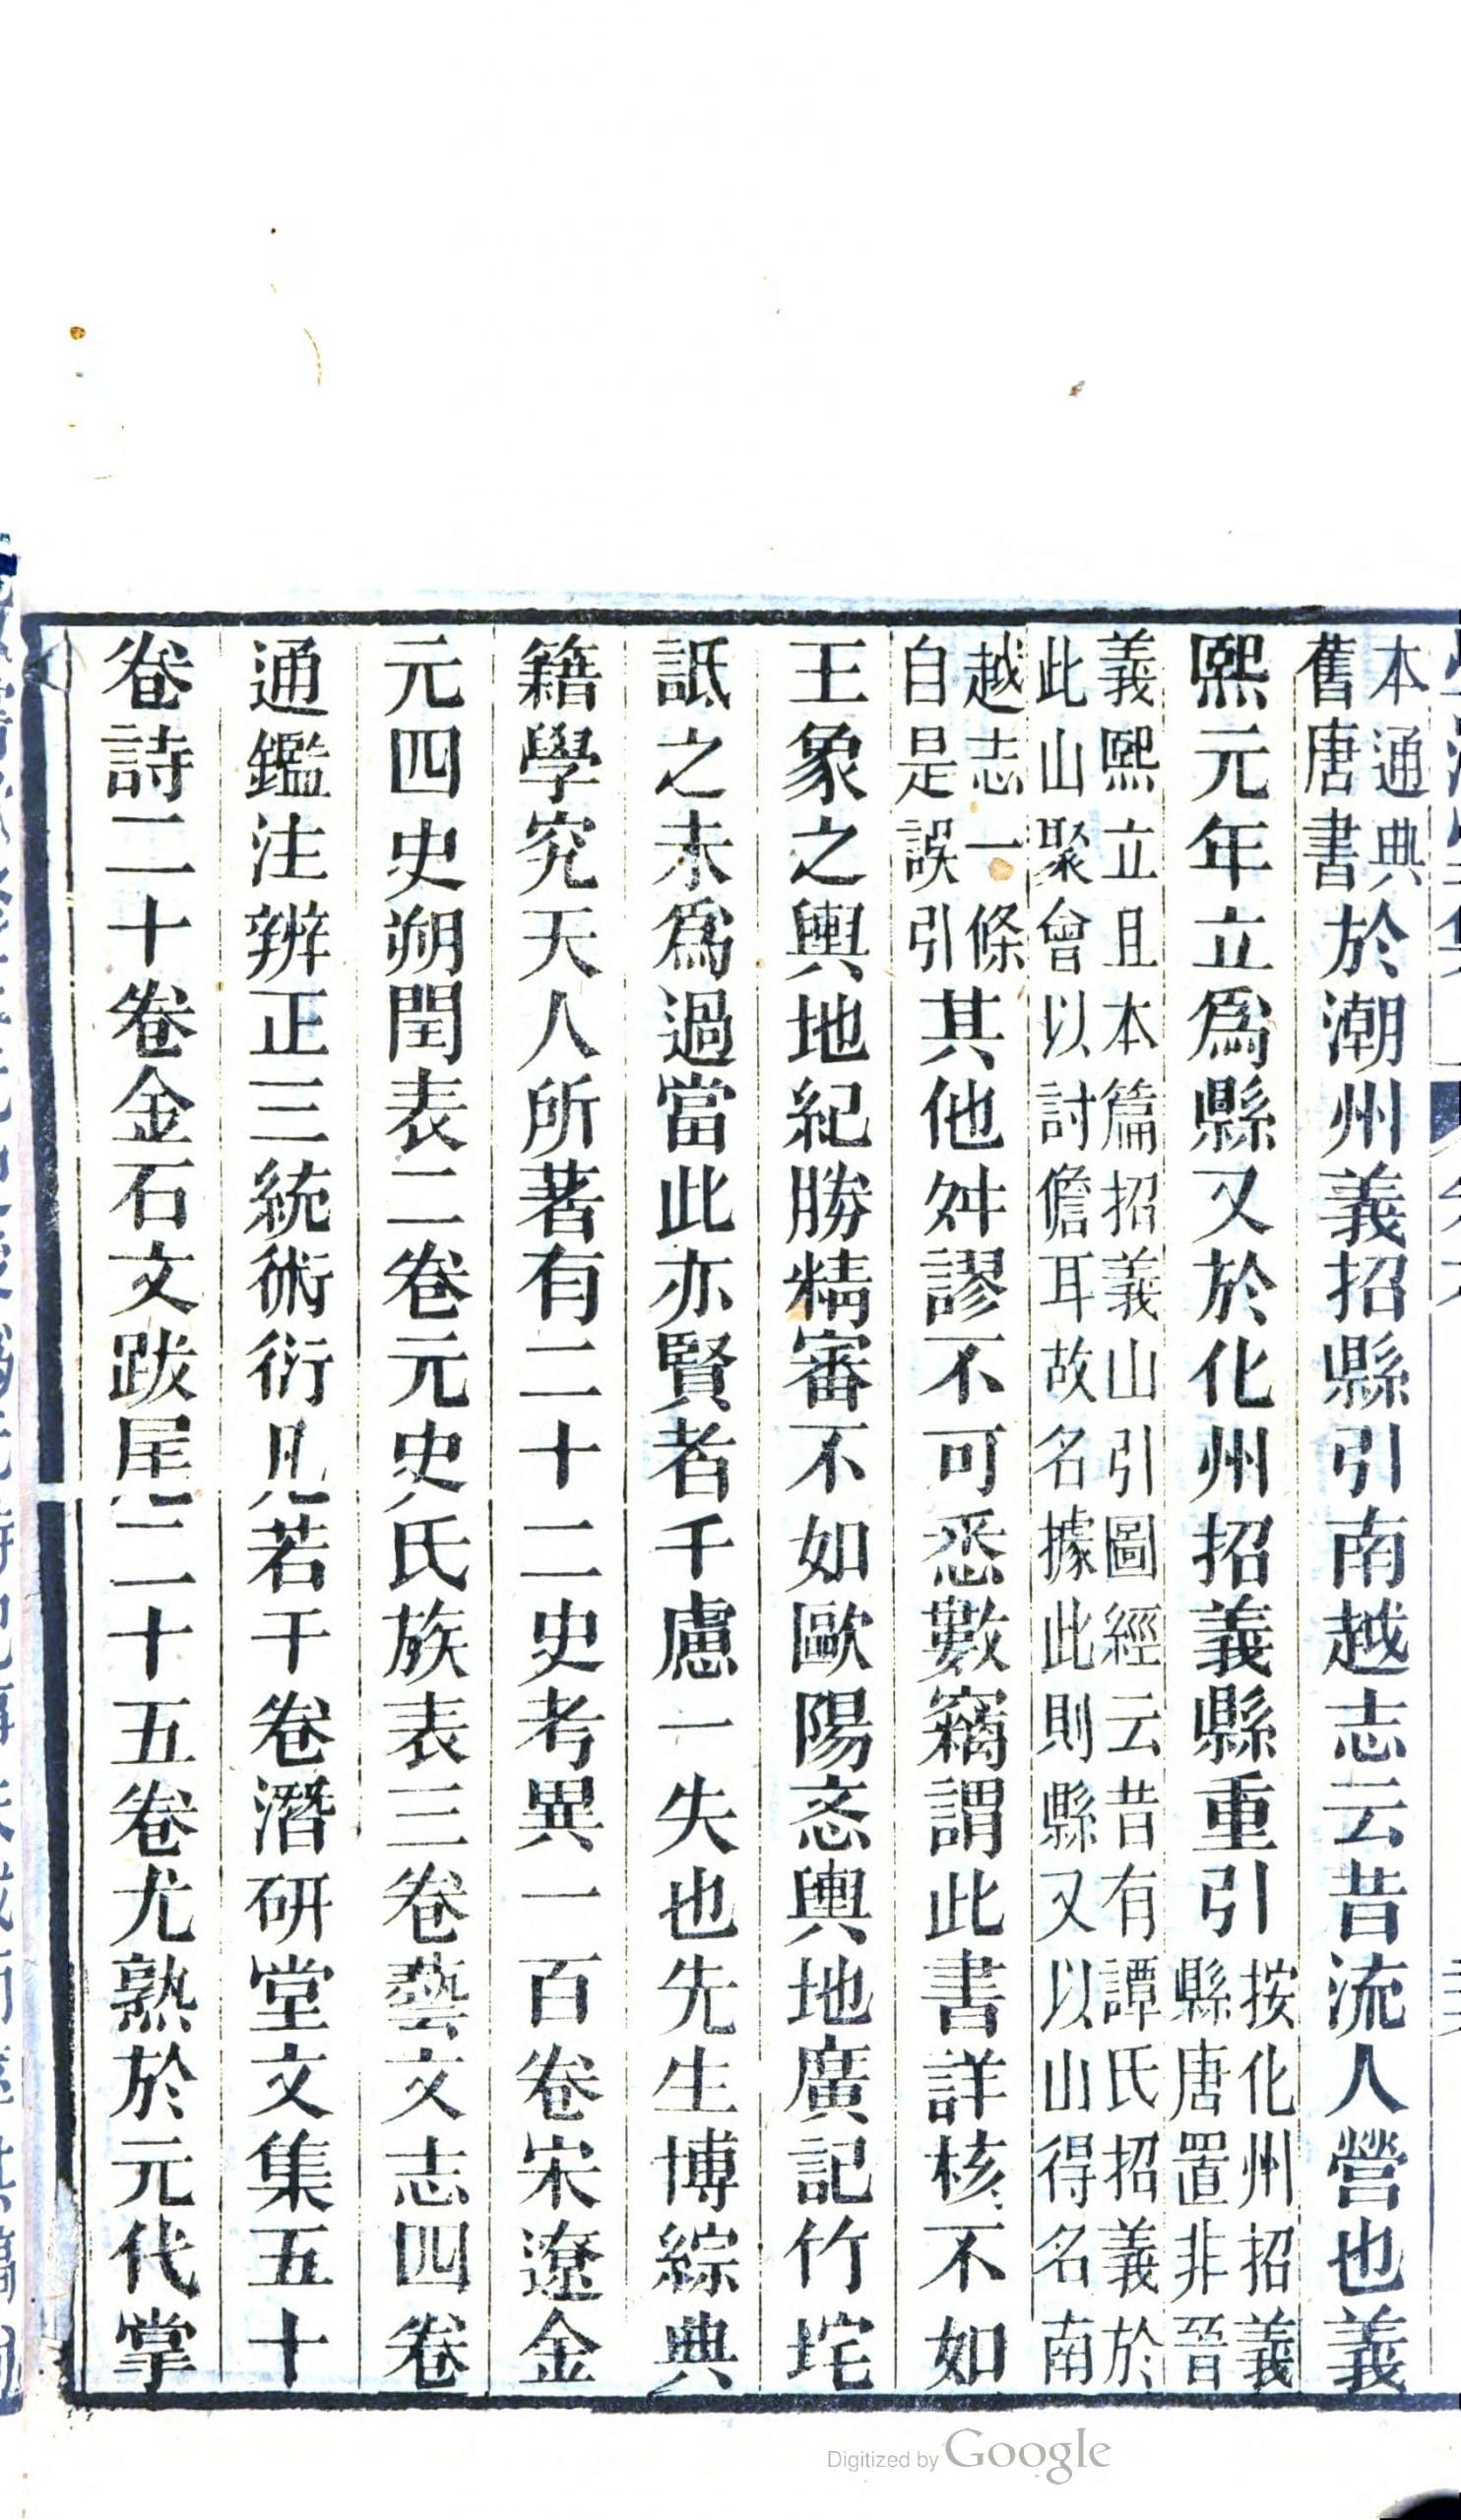 本通典舊唐書於潮州義招縣引南越志云昔流人營也義
熙元年立爲縣又於化州招義縣重引按化州招義縣唐置非晉
義熙立且本篇招義山引圖經云昔有譚氏招義於此山聚會以討儋耳故名據此則縣又以山得名南
越志一條自是誤引其他舛謬不可悉數竊謂此書詳核不如
王象之輿地紀勝精審不如歐陽忞輿地廣記竹垞
詆之未爲過當此亦賢者千慮一失也先生博綜典
籍學究天人所著有二十二史考異一百卷宋遼金
元四史朔閏表二卷元史氏族表三卷藝文志四卷
通鑑注辨正三統術衍凡若干卷潛研堂文集五十
卷詩二十卷金石文跋尾二十五卷尤熟於元代掌
Digitized by Google